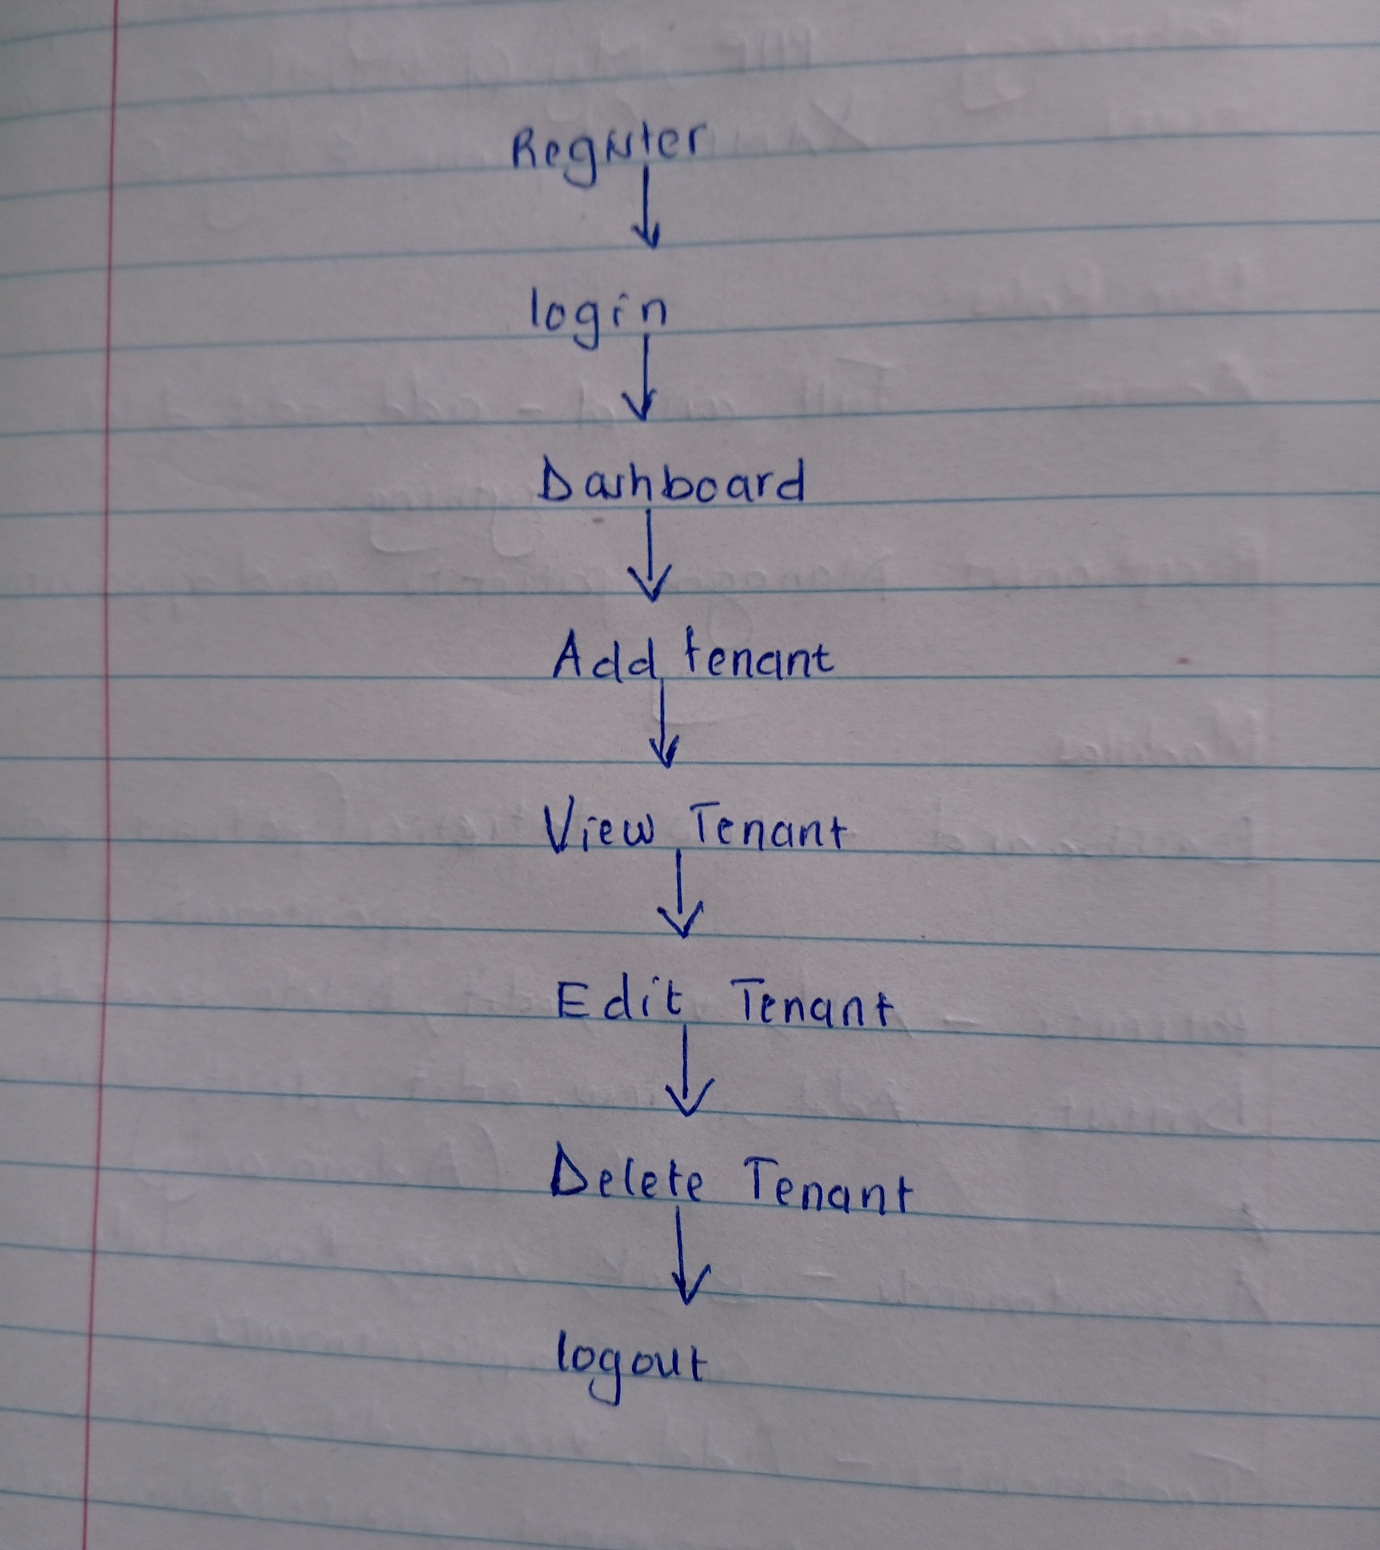 Register
login
Dashboard
Add tenant
View Tenant
Edit Tenant
Delete Tenant
logout